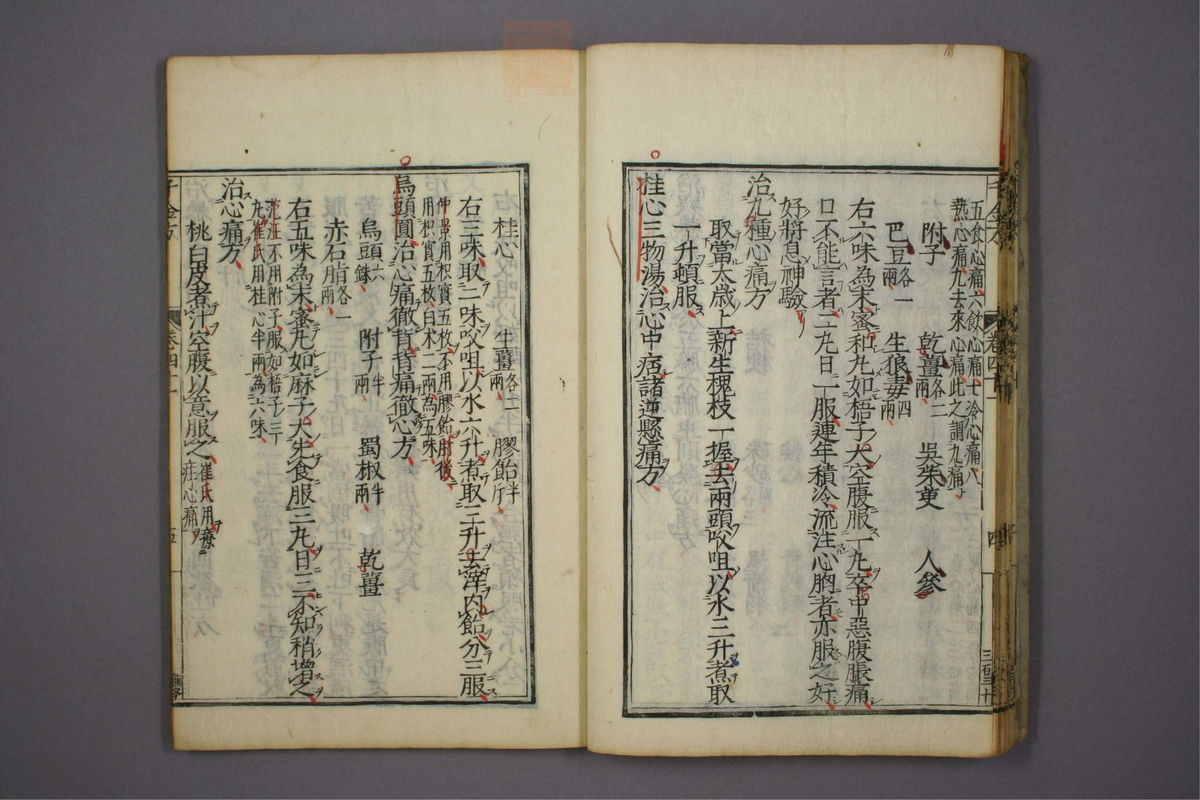 五食心痛六飲心痛七冷心痛八
熱心痛九去來心痛此之謂九痛
附子 乾薑各二兩 吳茱萸 人參
巴豆各一兩 生狼毒四兩
右六味為末蜜和丸如梧子大空腹服一丸卒中惡腹脹痛
口不能言者二丸日一服連年積冷流注心胸者亦服之好
好將息神驗
治九種心痛方
取當太歲上新生槐枝一握去兩頭㕮咀以水三升煮取
一升頓服
桂心三物湯治心中痞諸逆懸痛方
桂心 生薑各二兩 膠飴半斤
右三味取二味㕮咀以水六升煮取三升去滓內飴分三服
仲景用枳實五枚不用膠飴肘後
用枳實五枚白朮二兩為五味
烏頭圓治心痛徹背背痛徹心方
烏頭六銖 附子半兩 蜀椒半兩 乾薑
赤石脂各一兩
右五味為末蜜丸如麻子大先食服三丸日三不知稍增之
范汪不用附子服如梧子三
丸崔氏用桂心半兩為六味
治心痛方
桃白皮煮汁空腹以意服之崔氏用療疰心痛
千金方 卷四十一 五